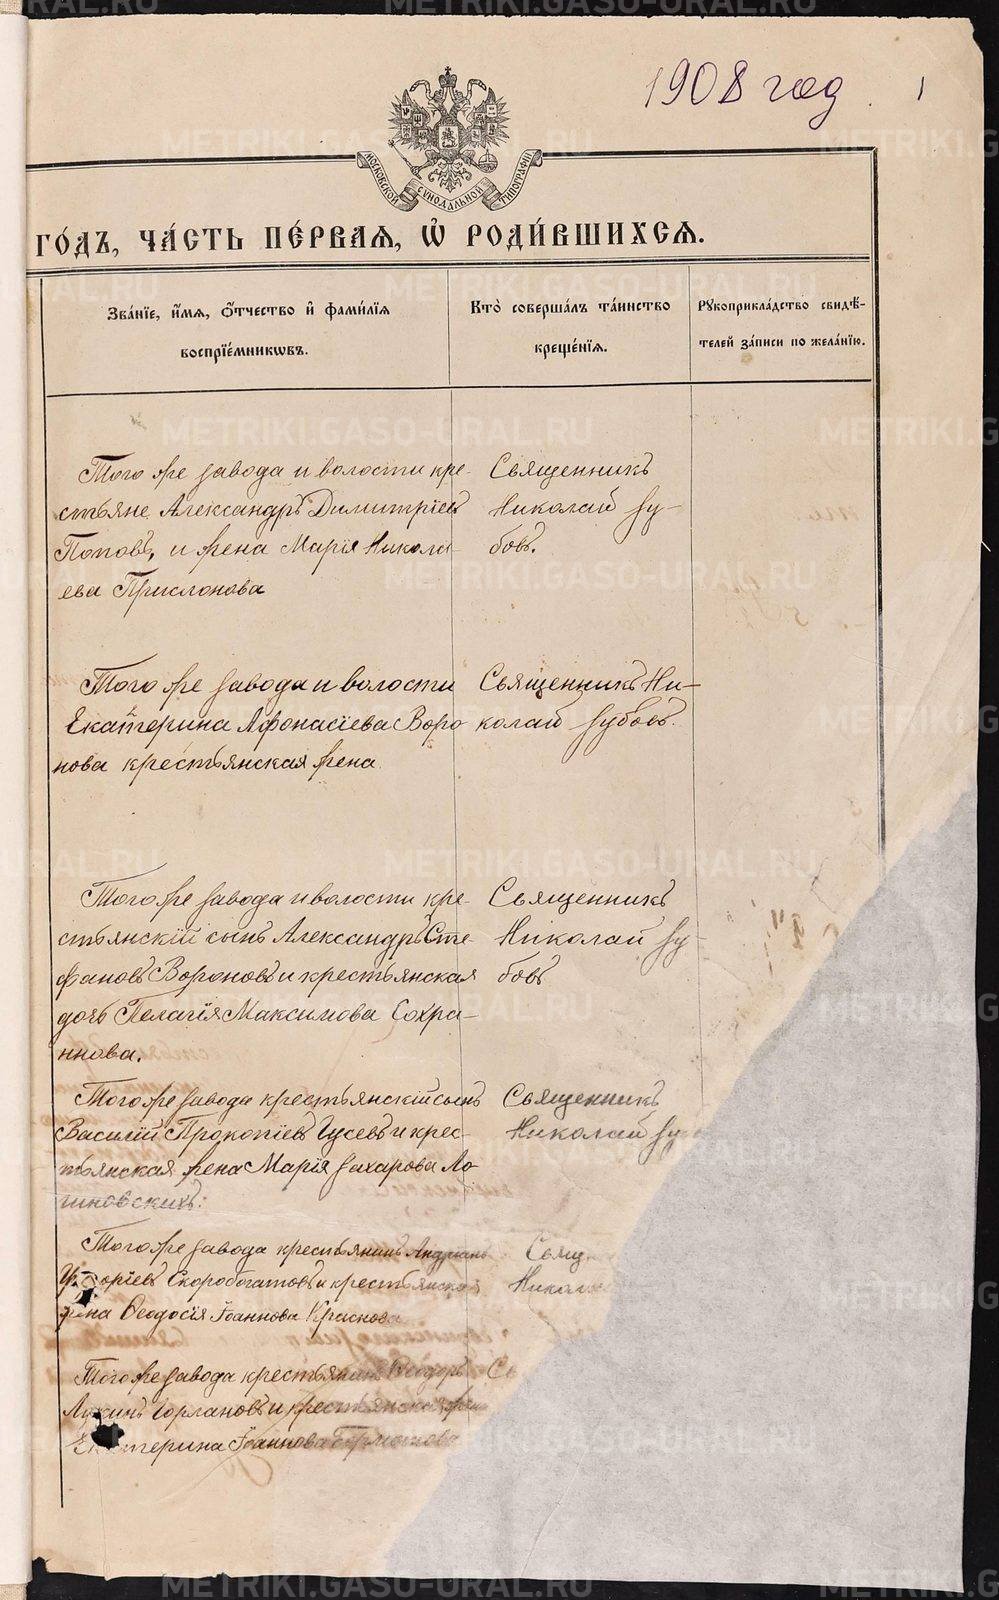 1908 год
1
МОСКОВСКОЙ СѴНОДАЛЬНОЙ ТИПОГРАФИИ
ГО́ДЪ, ЧА́СТЬ ПЕ́РВАѦ, Ѡ҆ РОДИ́ВШИХСѦ.
Зва́нїе, и҆́мѧ, ѻ҆́тчество и҆ фами́лїѧ
воспрїе́мникѡвъ.
Кто̀ соверша́лъ та́инство
креще́нїѧ.
Рꙋкоприкла́дство свидѣ́-
телей за́писи по жела́нїю.
Того же завода и волости кре-
стьяне Александръ Димитріевъ
Поповъ, и жена Марія Никола-
ева Прислонова
Священникъ
Николай Зу-
бовъ.
Того же завода и волости
Екатерина Афонасіева Воро
нова крестьянская жена
Священникъ Ни-
колай Зубовъ.
Того же завода и волости кре-
стьянскій сынъ Александръ Сте-
фановъ Вороновъ и крестьянская
дочь Пелагія Максимова Сохра-
ннова.
Священникъ
Николай Зу-
бовъ
Того же завода крестьянскій сынъ
Василій Прокопіевъ Гусевъ и крес-
тьянская жена Марія Захарова Ло
гиновскихъ.
Священникъ
Николай Зу
Того же завода крестьянинъ Андріанъ
Скоробогатовъ и крестьянская
жена Ѳеодосія Іоаннова Краснова
Свящ
Никола
Того же завода крестьянинъ Ѳеодоръ
Лукинъ Горлановъ и крестьянская жена
Екатерина Іоаннова
Св